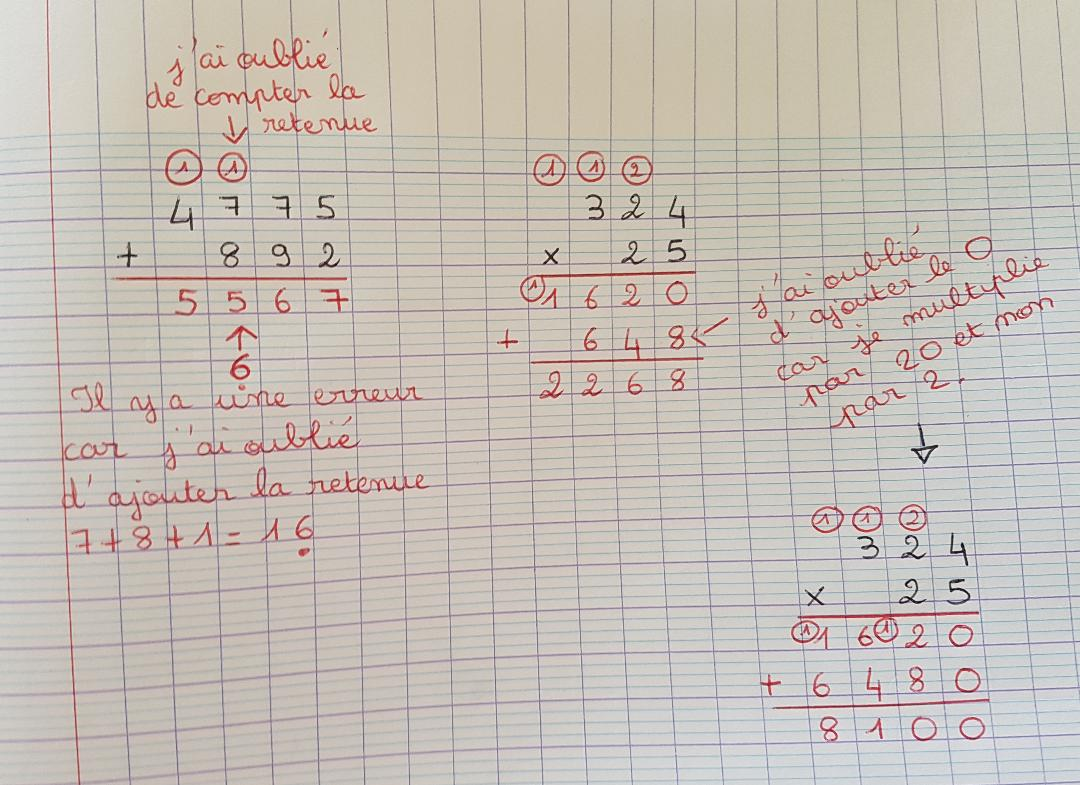 j'ai oublié
de compter la
↓ retenue
① ①
4 7 7 5
+ 8 9 2
5 5 6 7
↑
6
Il y a une erreur
car j'ai oublié
d'ajouter la retenue
7+8+1 = 16
① ① ②
3 2 4
x 2 5
① 1 6 2 0
+ 6 4 8 ←
2 2 6 8
j'ai oublié
d'ajouter le 0
car je multiplie
par 20 et mon
par 2.
↓
① ① ②
3 2 4
x 2 5
① 1 6 ① 2 0
+ 6 4 8 0
8 1 0 0